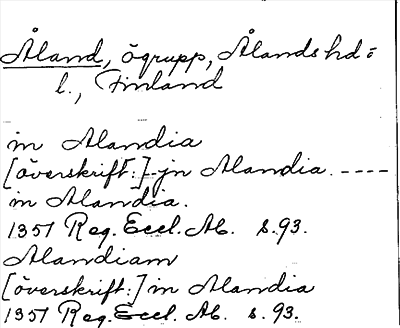 Åland, ögrupp, Ålands hd =
l., Finland
in Alandia
[överskrift:] jn Alandia. ----
in Alandia.
1351 Reg. Eccl. Ab. s. 93.
Alandiam
[överskrift:] in Alandia
1351 Reg. Eccl. Ab. s. 93.